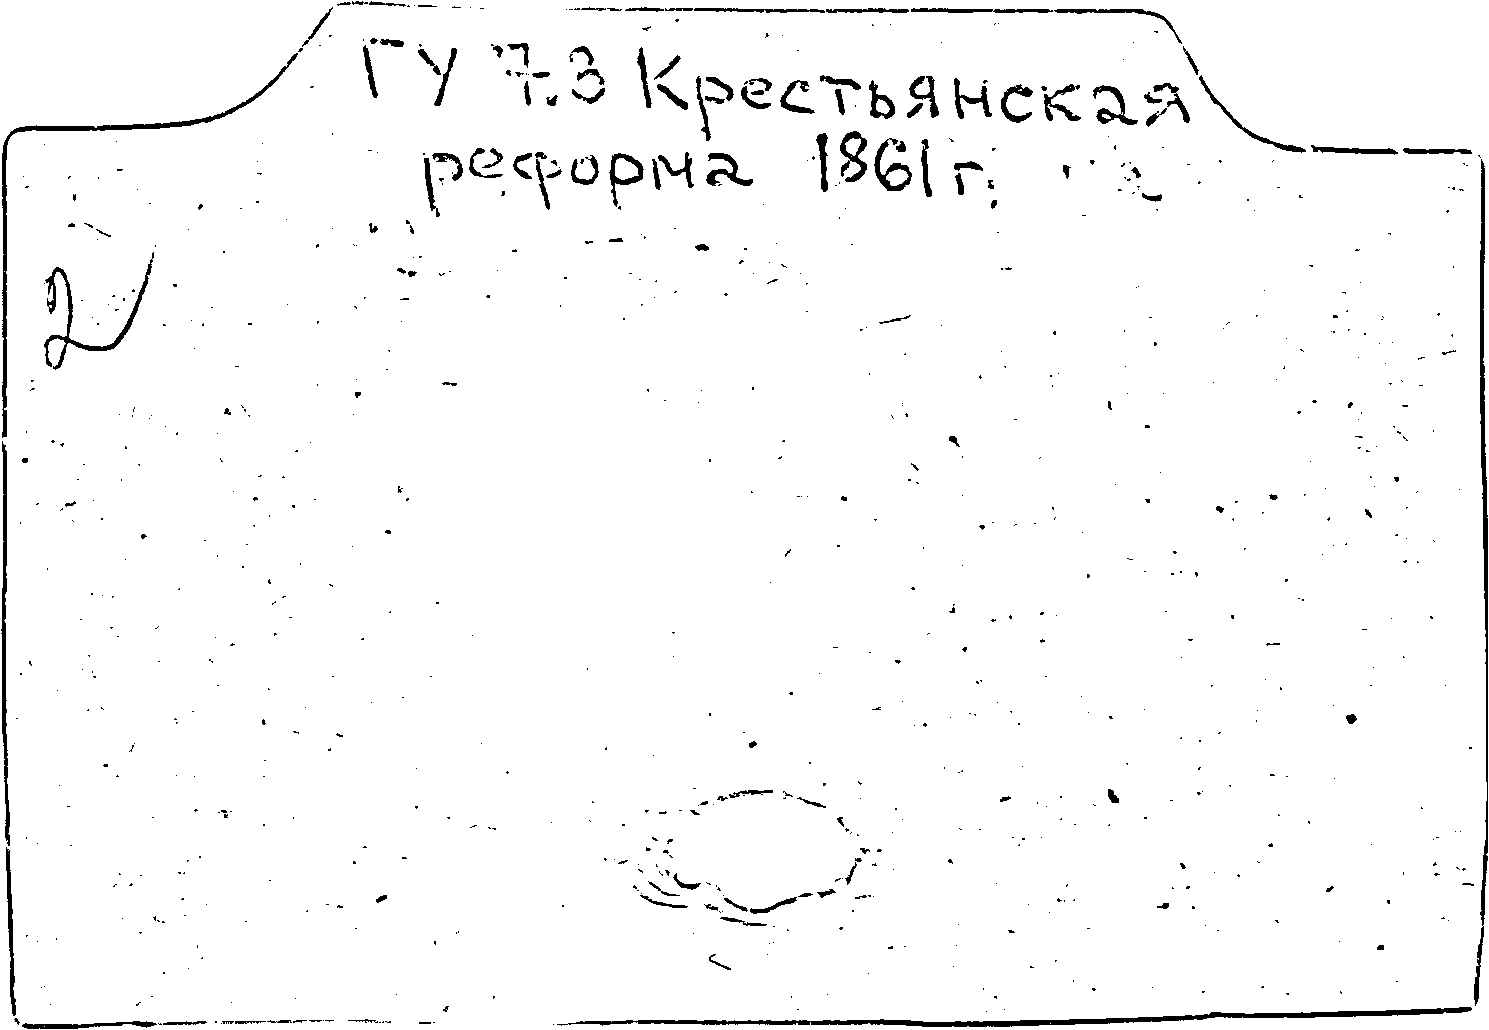 ГУ 7.3 Крестьянская
реформа 1861 г.
2